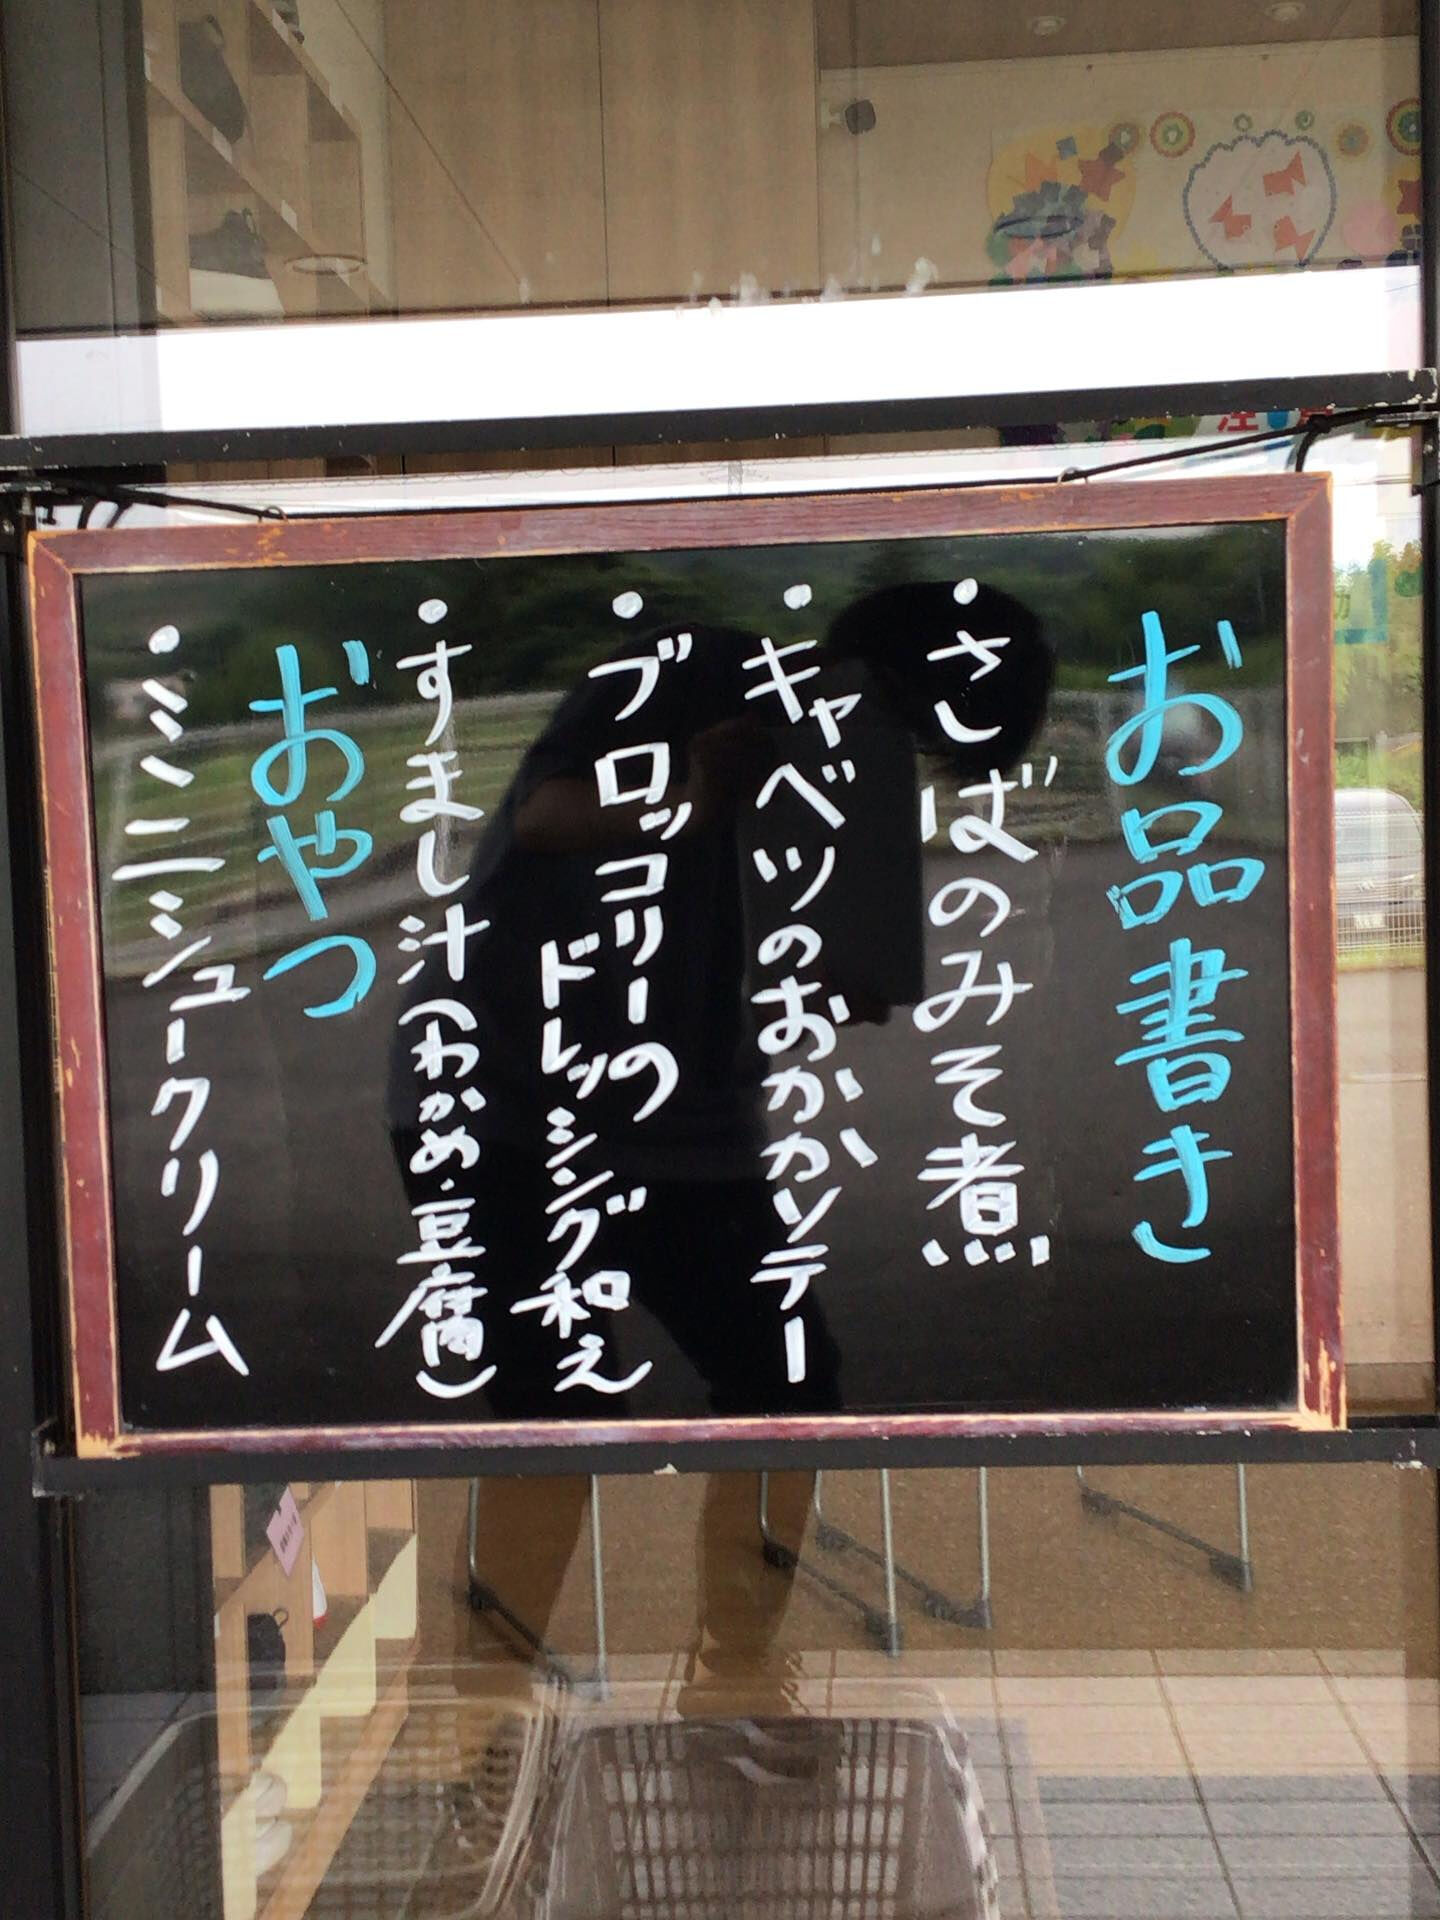 お品書き
・さばのみそ煮
・キャベツのおかかソテー
・ブロッコリーの
ドレッシング和え
・すまし汁(わかめ・豆腐)
おやつ
・ミニシュークリーム